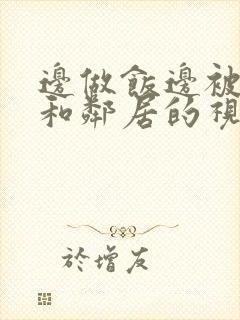 邊做飯邊被
和鄰居的視
於增友